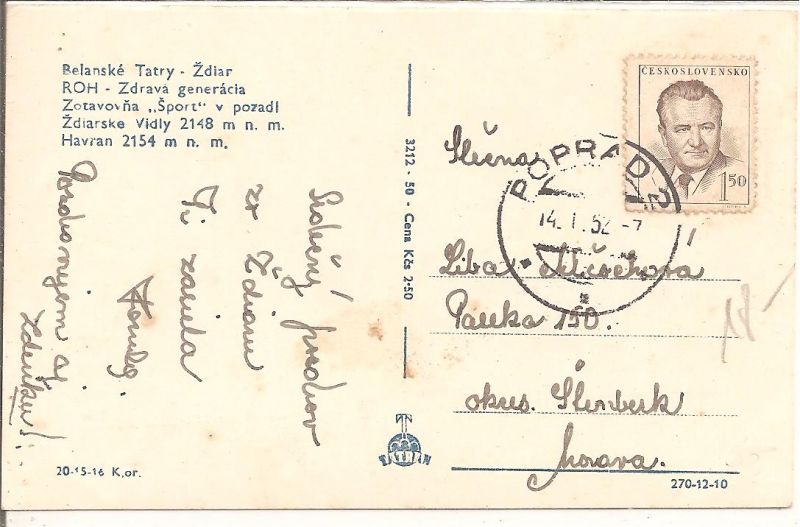 Belanské Tatry - Ždiar
ROH - Zdravá generácia
Zotavovňa „Šport" v pozadí
Ždiarske Vidly 2148 m n. m.
Havran 2154 m n. m.
Srdečný pozdrav
zo Ždiaru
Ti zasiela
Pozdravujem aj
Zdenku!
20-15-16 K.or.
3212 - 50 - Cena Kčs 2·50
TATRAN
ČESKOSLOVENSKO
1 50
POPRAD 2
14. I. 52 -7
Slečna
Liba
Paseka 150.
okres. Šternberk
Morava.
270-12-10